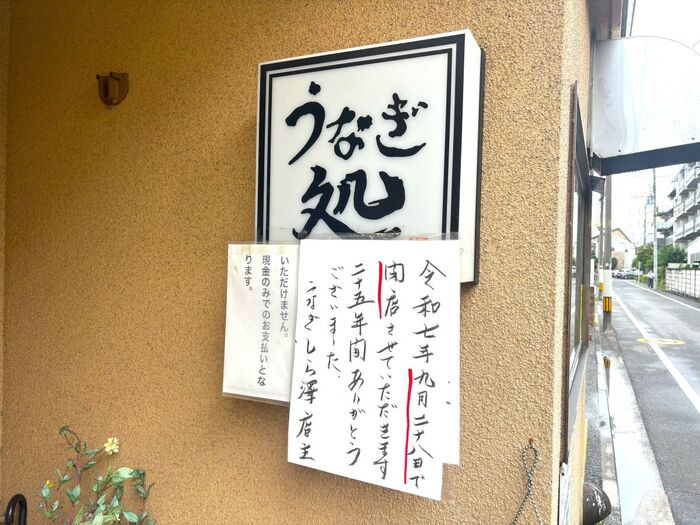 うなぎ
処
いただけません。
現金のみでのお支払いとな
ります。
令和七年九月二十八日で
閉店させていただきます
二十五年間ありがとう
ございました.
うなぎしら澤店主